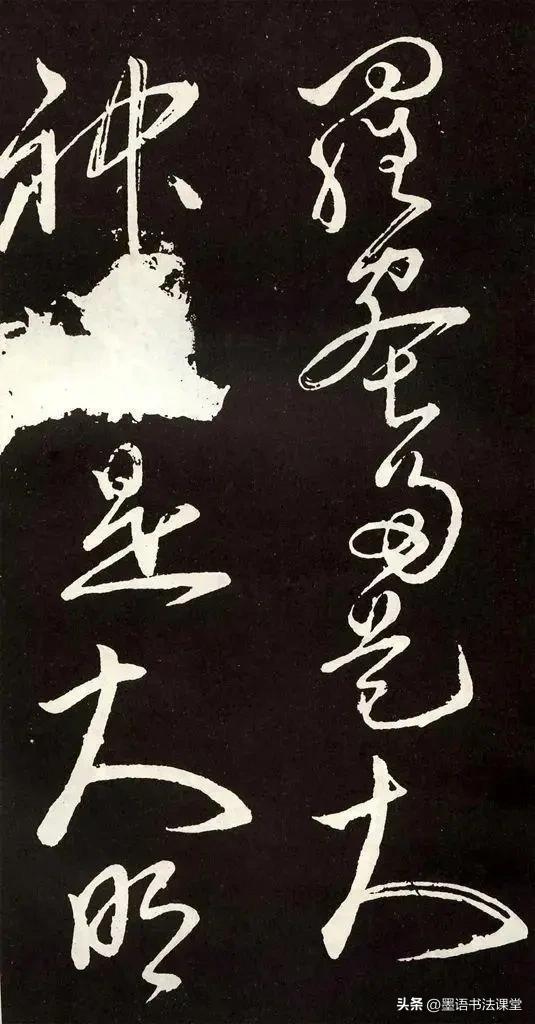 羅蜜多是大
神是大明
头条 @墨语书法课堂